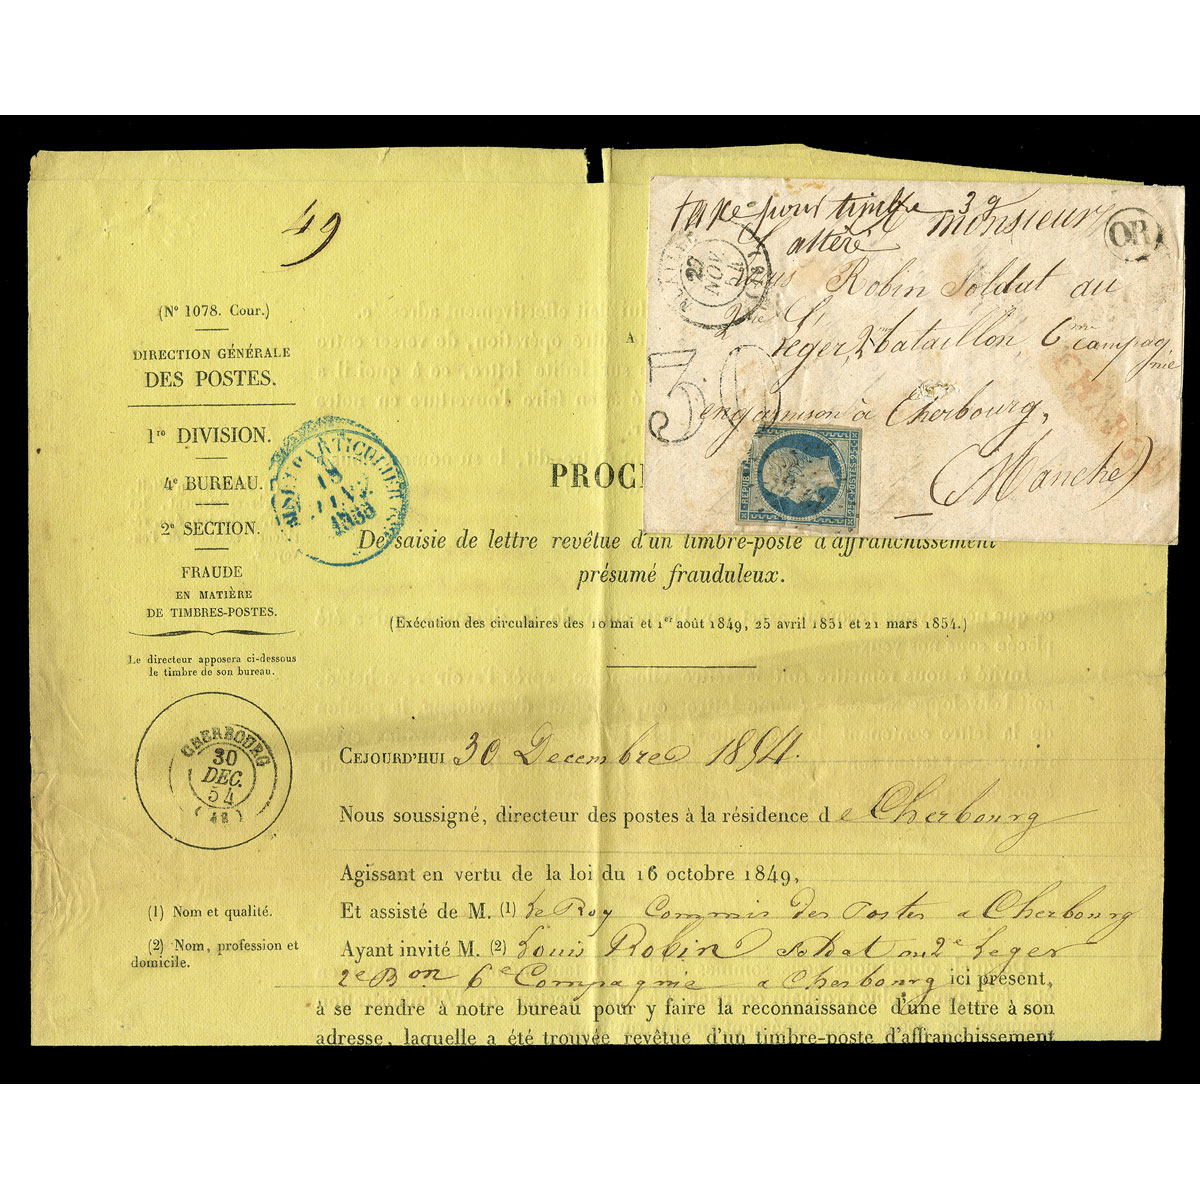 49
(N° 1078. Cour.)
DIRECTION GÉNÉRALE
DES POSTES.
1re DIVISION.
4e BUREAU.
2e SECTION.
FRAUDE
EN MATIÈRE
DE TIMBRES-POSTES.
Le directeur apposera ci-dessous
le timbre de son bureau.
CHERBOURG
30
DEC.
54
(48)
(1) Nom et qualité.
(2) Nom, profession et
domicile.
PARTICULIER
1855
taxe pour timbre
altéré
Monsieur
OR
22
NOV
54
Robin Soldat au
2me
Leger, 2m bataillon, 6me campag
nie
30
en garnison à Cherbourg,
(Manche)
REPUB
25 C. POSTES 25 C.
PROC
De saisie de lettre revêtue d'un timbre-poste d'affranchissement
présumé frauduleux.
(Exécution des circulaires des 10 mai et 1er août 1849, 25 avril 1851 et 21 mars 1854.)
CEJOURD'HUI 30 Decembre 1854.
Nous soussigné, directeur des postes à la résidence de Cherbourg
Agissant en vertu de la loi du 16 octobre 1849,
Et assisté de M. (1) Le Roy Commis des Postes a Cherbourg
Ayant invité M. (2) Louis Robin Soldat au 2e Leger
2e Bon 6e Compagnie a Cherbourg ici présent,
à se rendre à notre bureau pour y faire la reconnaissance d'une lettre à son
adresse, laquelle a été trouvée revêtue d'un timbre-poste d'affranchissement